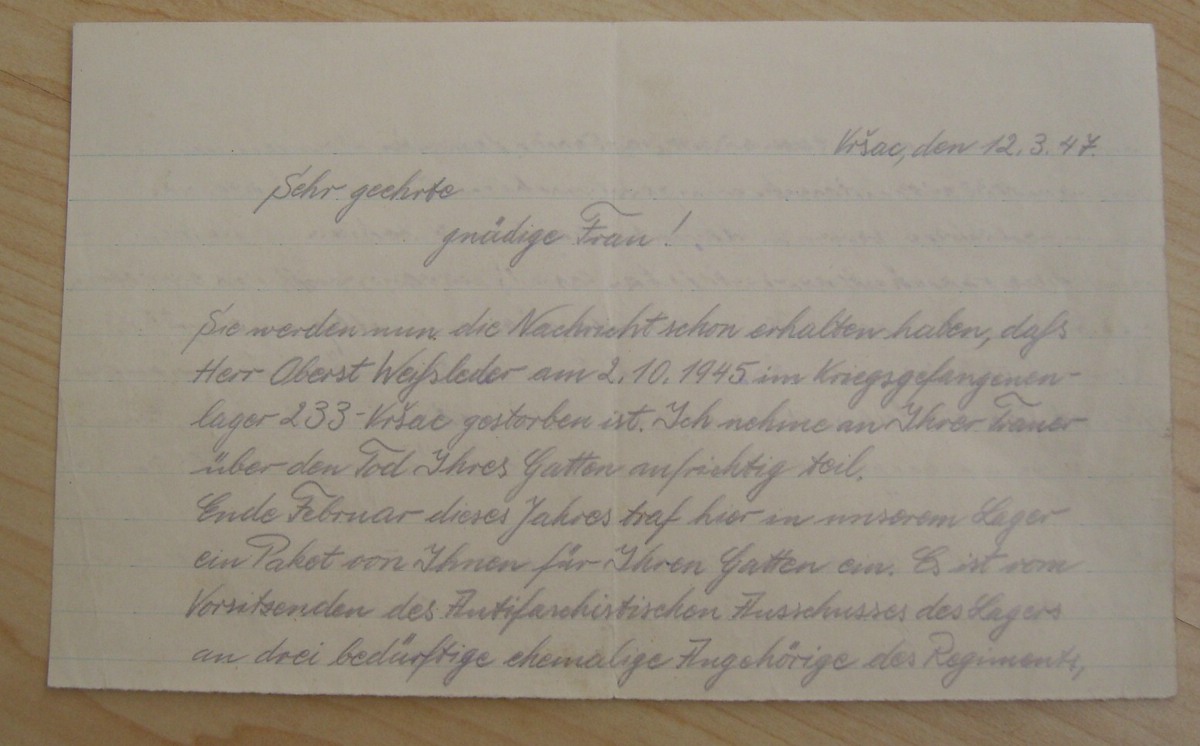 Vršac, den 12.3.47.
Sehr geehrte
gnädige Frau!
Sie werden nun die Nachricht schon erhalten haben, daß
Herr Oberst Weißleder am 2.10.1945 im Kriegsgefangenen-
lager 233-Vršac gestorben ist. Ich nehme an Ihrer Trauer
über den Tod Ihres Gatten aufrichtig teil.
Ende Februar dieses Jahres traf hier in unserem Lager
ein Paket von Ihnen für Ihren Gatten ein. Es ist vom
Vorsitzenden des Antifaschistischen Ausschusses des Lagers
an drei bedürftige ehemalige Angehörige des Regiments,